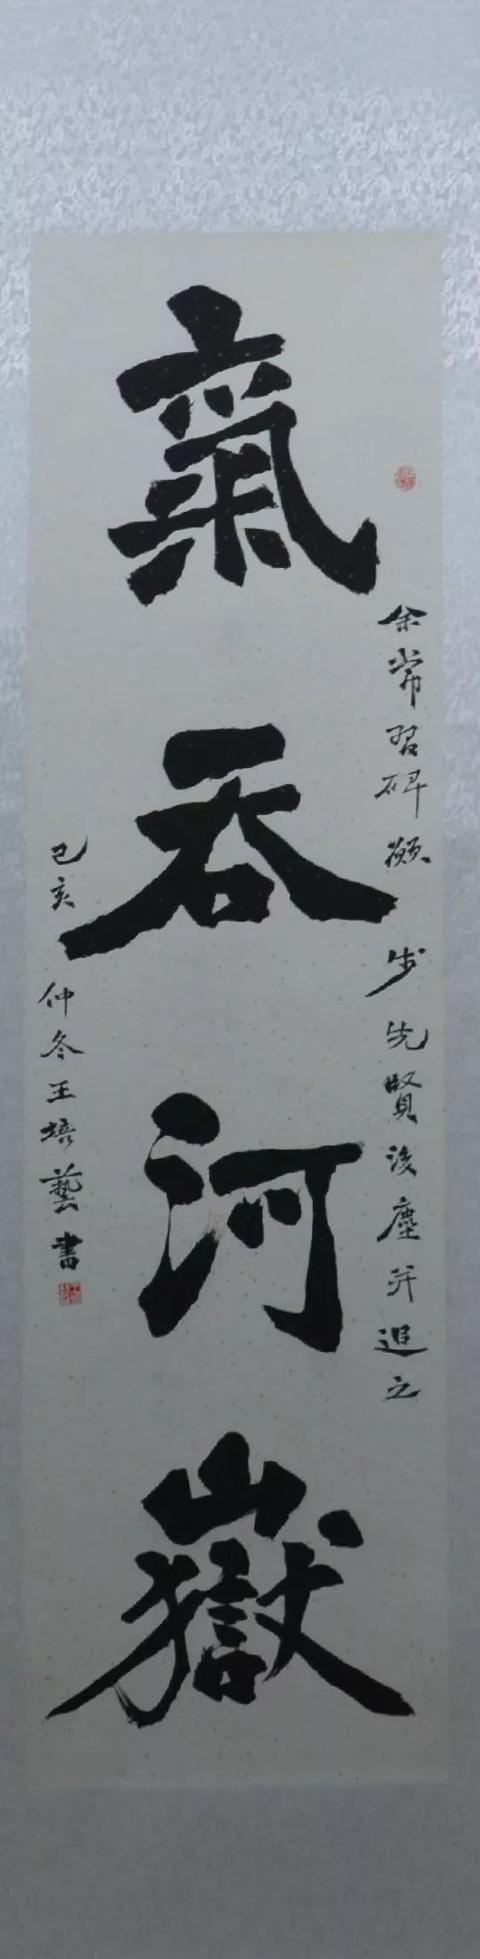 氣吞河嶽
余常習碑願步先賢後塵并追之
己亥仲冬王培藝書